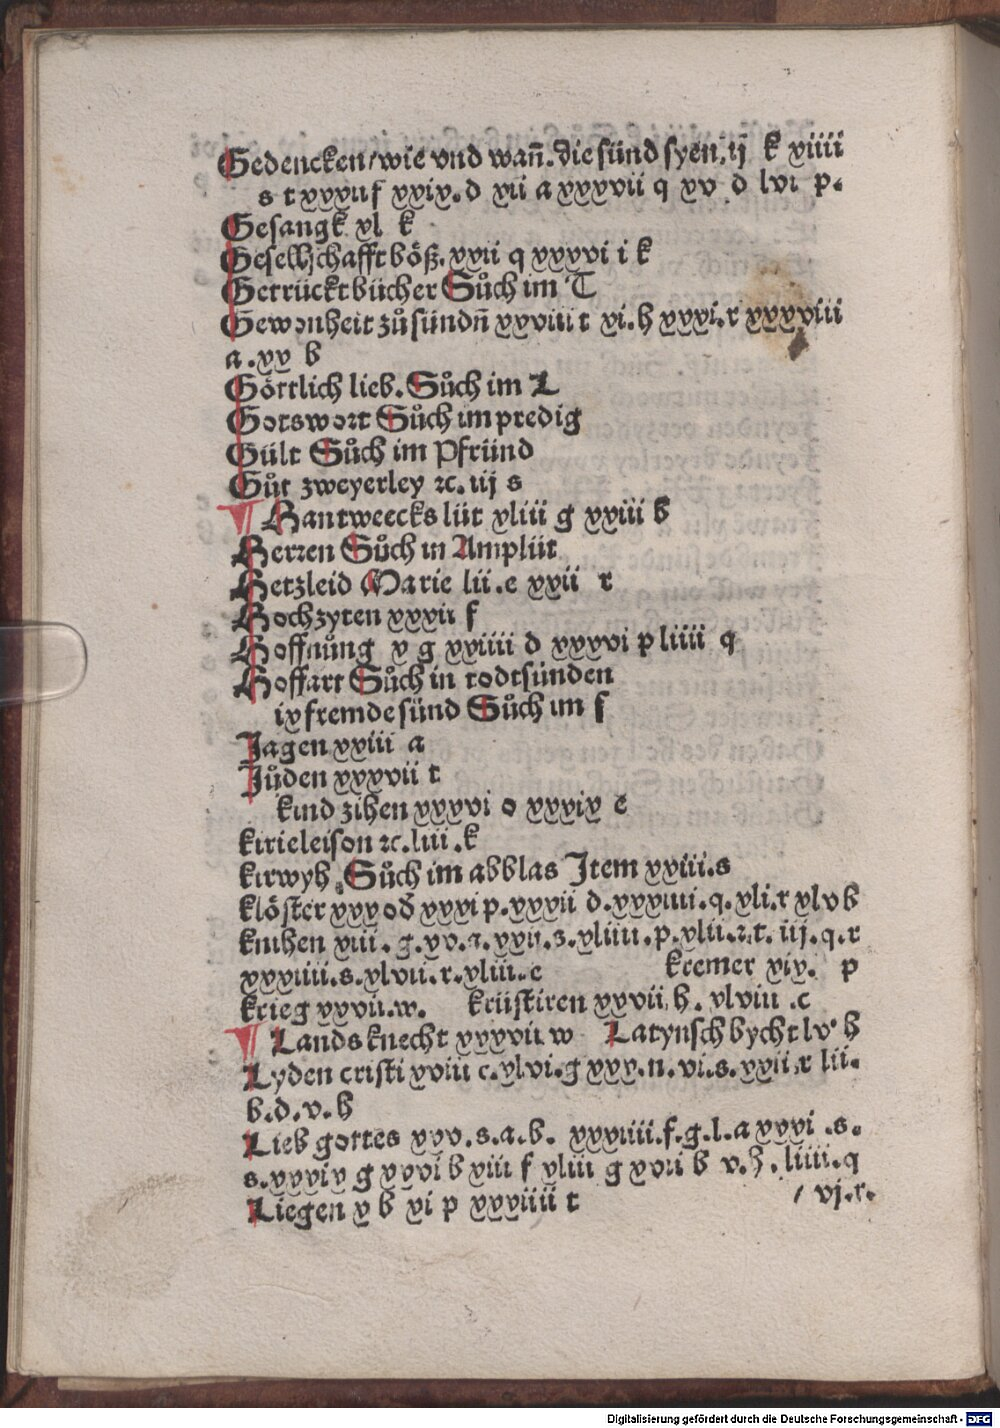 Gedencken/wie vnd wañ.die sünd syen.ij k xiiii
s t xxxii f xxix.d xii a xxxvii q xv d lvi p.
Gesangk xl k
Gesellschafft böß.xxii q xxxvi i k
Getrückt bücher Sůch im T
Gewonheit zů sündñ xxviiii t xi.h xxxi.r xxxviii
a.xx b
Göttlich lieb.Sůch im L
Gotswort Sůch im predig
Gült Sůch im Pfründ
Gůt zweyerley ꝛc.iij s
¶ Hantweecks lüt xliii g xxiii b
Herren Sůch in Amplüt
Hertzleid Marie lii.e xxii r
Hochzyten xxxvii f
Hoffnůng x g xxiiii d xxxvi p liiii q
Hoffart Sůch in todtsünden
ix fremde sünd Sůch im f
Jagen xxiii a
Jůden xxxvii t
kind zihen xxxvi o xxxix e
kirieleison ꝛc.liii.k
kirwyh.Sůch im abblas Item xxiii.s
klöster xxx od xxxi p.xxxii d.xxxiiii.q.xli.r xlv b
knihen xiii.g.xv.a.xxii.s.xliiii.p.xlii.ꝛ.t.iij.q.r
xxxiiii.s.xlvii.r.xliii.c kremer xix. p
krieg xxvii.w. krüstiren xxvii.h.xlviii.c
¶ Landsknecht xxxvii.w Latynsch bycht lv h
Lyden cristi xviii c.xlvi.g xxx.n.vi.s.xxii.r lii.
b.d.v.h
Lieb gottes xxv.s.a.b. xxxiiii.f.g.l.a xxxi.s.
s.xxxix g xxvi b xiii f xliii g xvii b v.h.liiii.q
Liegen x b xi p xxxiiii t / vj.r.
Digitalisierung gefördert durch die Deutsche Forschungsgemeinschaft - DFG